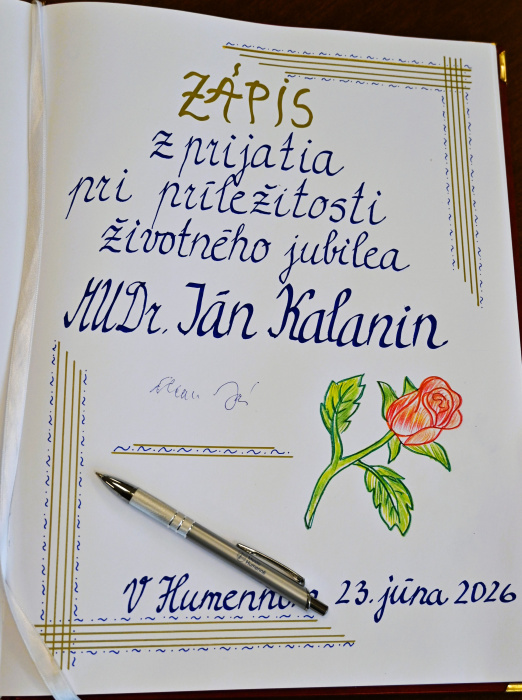 ZÁPIS
z prijatia
pri príležitosti
životného jubilea
MUDr. Ján Kalanin
V Humennom 23. júna 2026